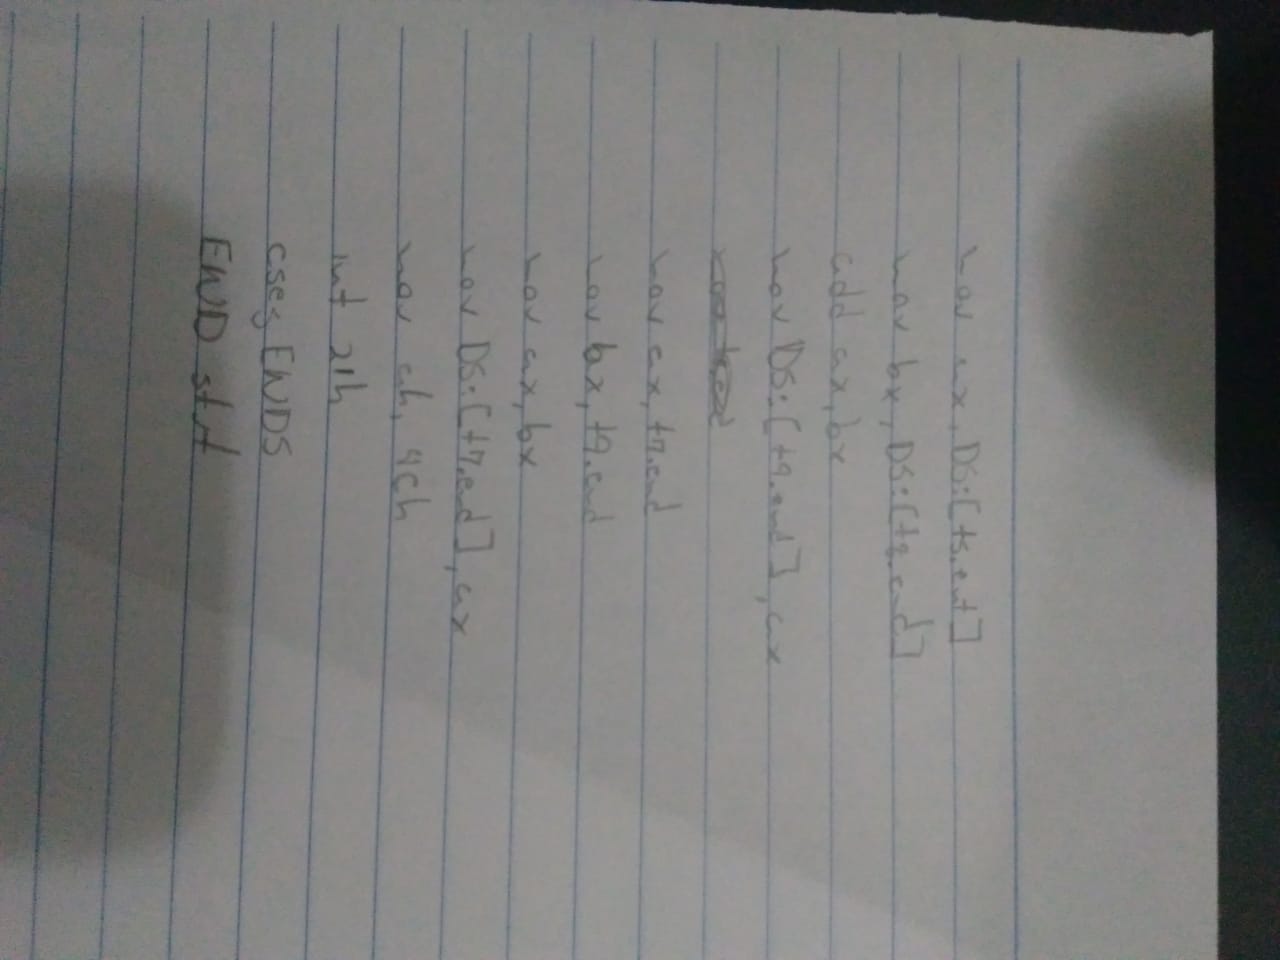 mov ax, DS:[t5.end]
mov bx, DS:[t8.end]
add ax, bx
mov DS:[t9.end], ax
mov ax, t7.end
mov bx, t9.end
mov ax, bx
mov DS:[t7.end], ax
mov ah, 4ch
int 21h
cseg ENDS
END strt